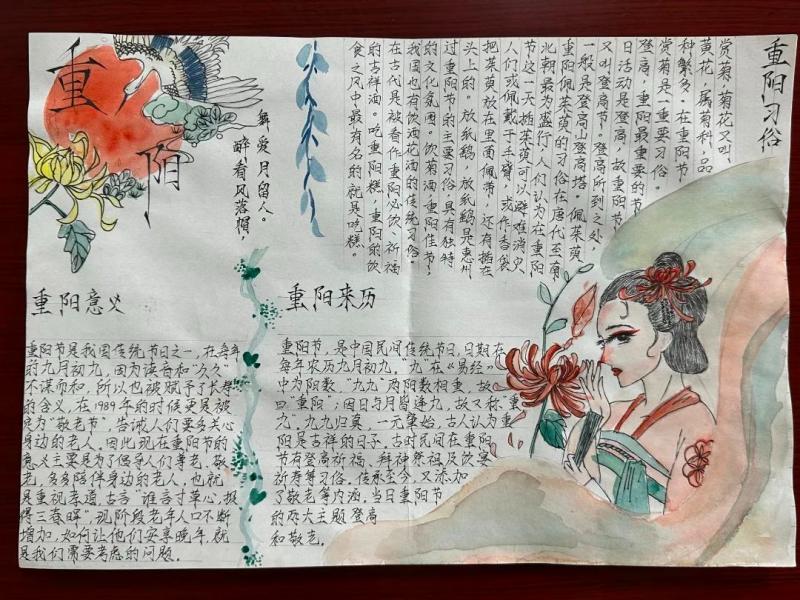 重阳
醉看风落帽，
舞爱月留人。
重阳习俗
赏菊，菊花又叫、
黄花，属菊科，品
种繁多。在重阳节
赏菊是一重要习俗。
登高，重阳最重要的节
日活动是登高，故重阳节
又叫登高节。登高所到之处
一般是登高山登高塔。佩茱萸
重阳佩茱萸的习俗在唐代至南
北朝最为盛行，人们认为在重阳
节这一天插茱萸可以避难消灾
人们或佩戴于手臂，或作香袋
把茱萸放在里面佩带，还有插在
头上的。放纸鹞，放纸鹞是惠州
过重阳节的主要习俗，具有独特
的文化氛围。饮菊酒，重阳佳节，
我国也有饮酒花酒的传统习俗。
在古代是被看作重阳必饮、祈福
的吉祥酒。吃重阳糕，重阳的饮
食之风中最有名的就是吃糕。
重阳意义
重阳节是我国传统节日之一，在每年
的九月初九，因为读音和“久久”
不谋而和，所以也被赋予了长寿
的含义，在1989年的时候更是被
定为“敬老节”，告诫人们要多关心
身边的老人。因此现在重阳节的
意义主要是为了倡导人们尊老、敬
老，多多陪伴身边的老人，也就
是重视孝道，古言“谁言寸草心，报
得三春晖”，现阶段老年人口不断
增加，如何让他们安享晚年就
是我们需要考虑的问题。
重阳来历
重阳节，是中国民间传统节日，日期在
每年农历九月初九，“九”在《易经》
中为阳数，“九九”两阳数相重，故
曰“重阳”；因日与月皆逢九，故又称“重
九”。九九归真，一元肇始，古人认为重
阳是吉祥的日子。古时民间在重阳
节有登高祈福、拜神祭祖及饮宴
祈寿等习俗。传承至今，又添加
了敬老等内涵，当日重阳节
的两大主题登高
和敬老。